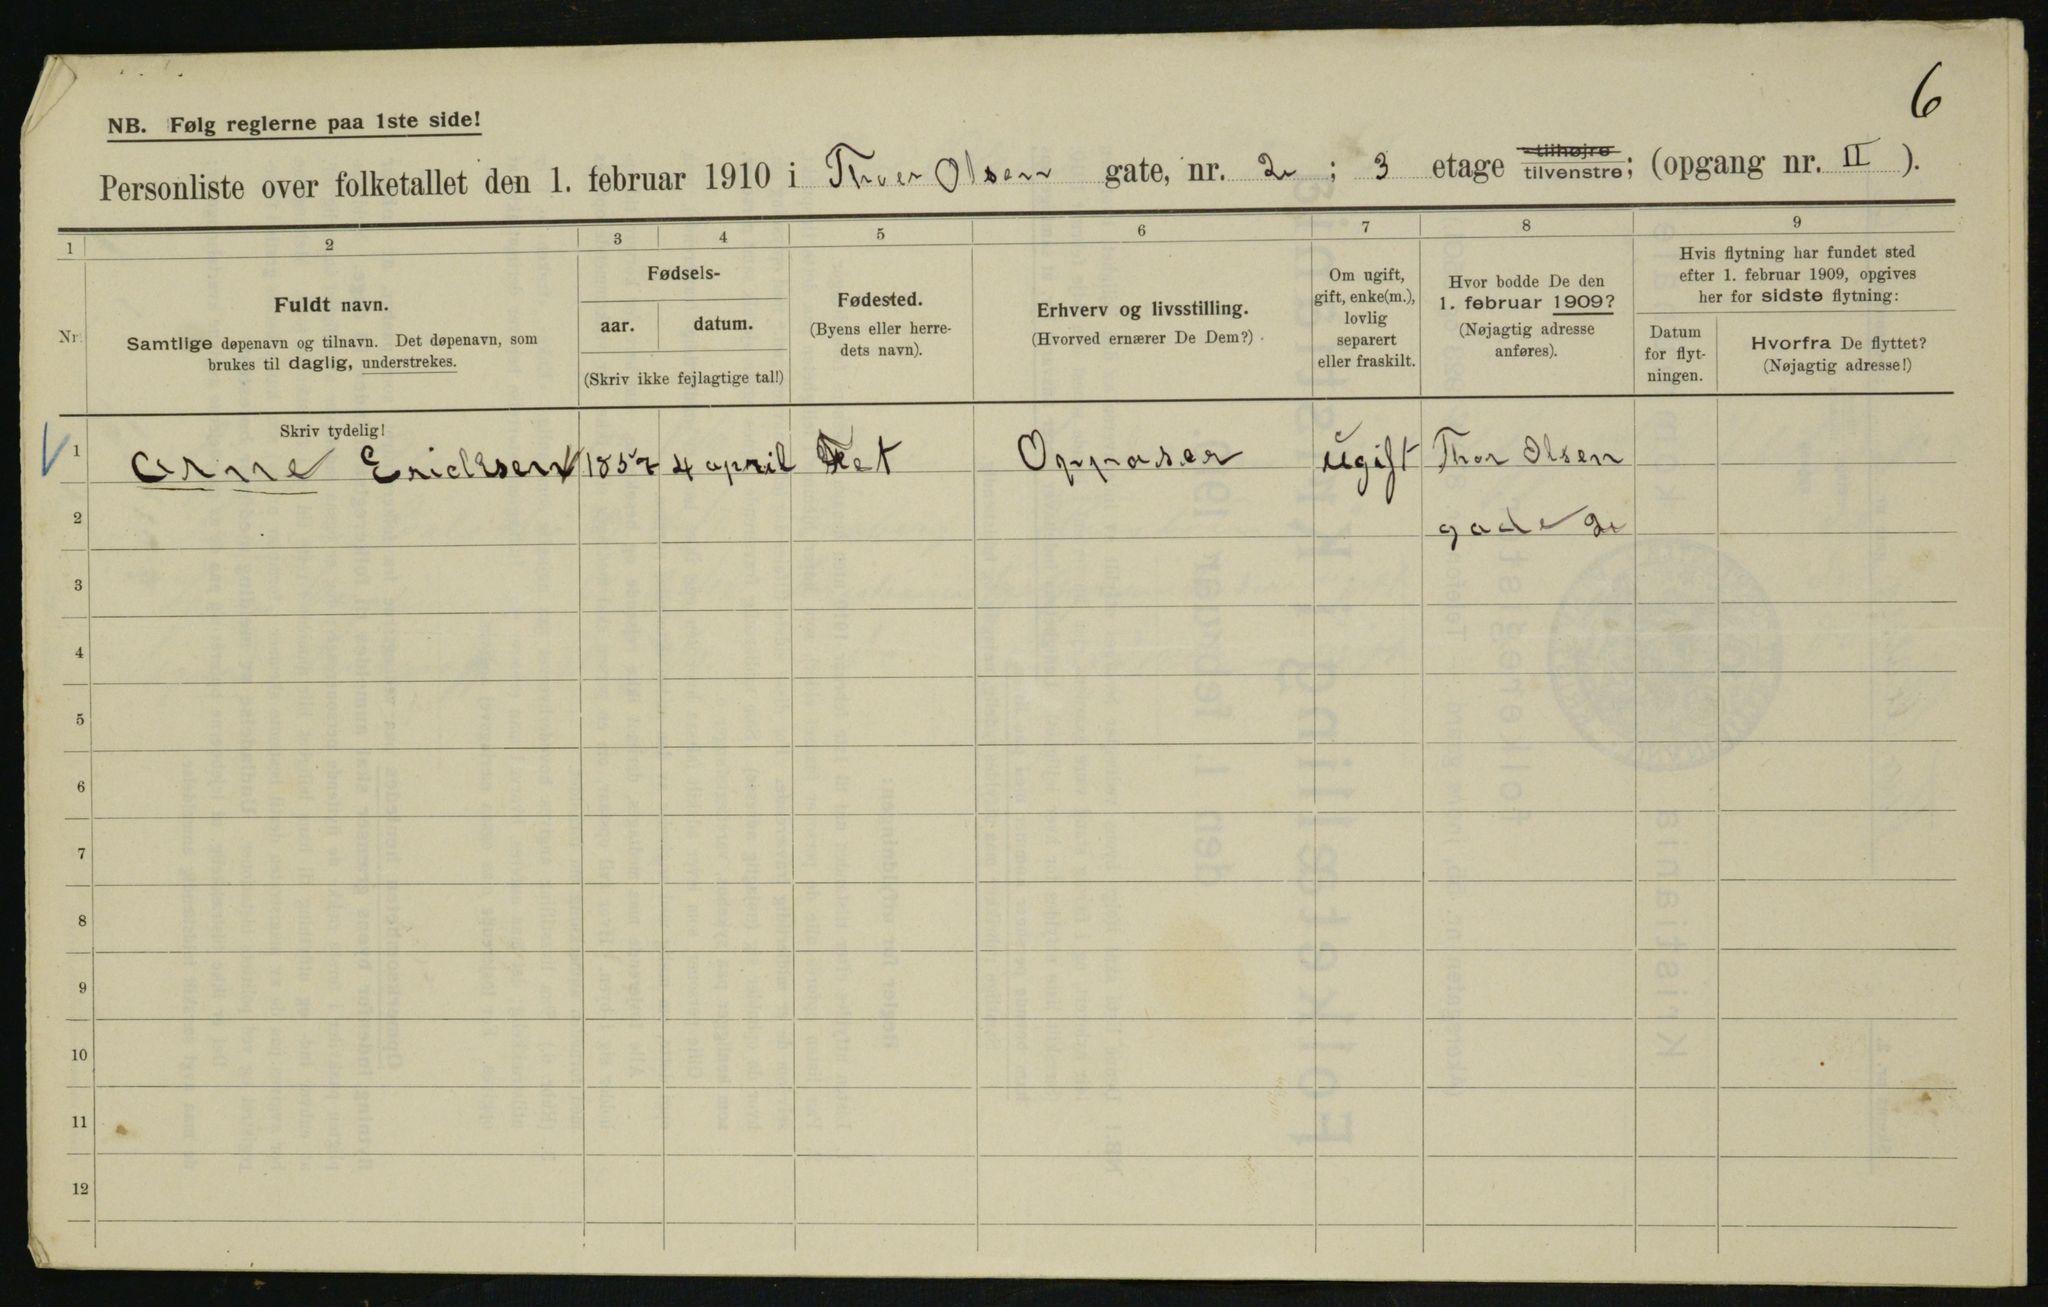 6
NB. Følg reglerne paa 1ste side!
Personliste over folketallet den 1. februar 1910 i Thver Olsens gate, nr. 2 ; 3 etage tilhøjre tilvenstre; (opgang nr. II ).
1 2 3 4 5 6 7 8 9
Nr.
Fuldt navn.
Samtlige døpenavn og tilnavn. Det døpenavn, som
brukes til daglig, understrekes.
Fødsels-
aar. datum.
(Skriv ikke fejlagtige tal!)
Fødested.
(Byens eller herre-
dets navn).
Erhverv og livsstilling.
(Hvorved ernærer De Dem?)
Om ugift,
gift, enke(m.),
lovlig
separert
eller fraskilt.
Hvor bodde De den
1. februar 1909?
(Nøjagtig adresse
anføres).
Hvis flytning har fundet sted
efter 1. februar 1909, opgives
her for sidste flytning:
Datum
for flyt-
ningen.
Hvorfra De flyttet?
(Nøjagtig adresse!)
Skriv tydelig!
1 Arne Ericksen 1857 4 april Fet Oppaser ugift Thor Olsen
2 gade 2
3
4
5
6
7
8
9
10
11
12